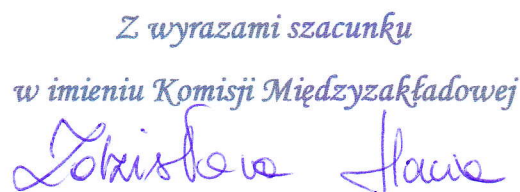 Z wyrazami szacunku
w imieniu Komisji Międzyzakładowej
Zdzisława Hacia